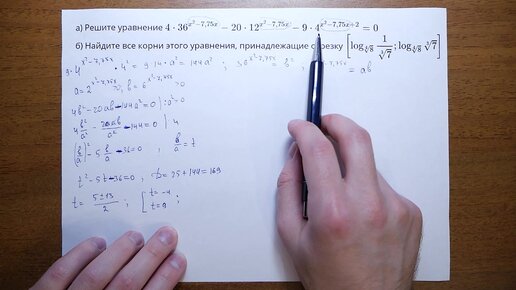 а) Решите уравнение 4 · 36^(x²−7,75x) − 20 · 12^(x²−7,75x) − 9 · 4^(x²−7,75x+2) = 0
б) Найдите все корни этого уравнения, принадлежащие отрезку [log_∜8 1/∛7; log_∜8 ∛7]
9·4^(x²−7,75x) · 4² = 9·14·a² = 144a² ; 36^(x²−7,75x) = b² ,
a = 2^(x²−7,75x) > 0, b = 6^(x²−7,75x) > 0 = ab
4b² − 20ab − 144a² = 0 | : a² > 0
4b²/a² − 20ab/a² − 144 = 0 | 4
(b/a)² − 5 b/a − 36 = 0 ; b/a = t
t² − 5t − 36 = 0 , D = 25 + 144 = 169
t = (5 ± 13)/2 ; [ t = −4
t = 9 ;